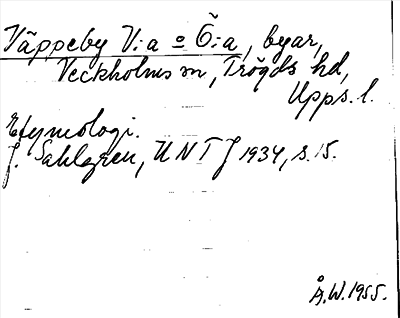 Väppeby V:a o Ö:a, byar,
Veckholms sn, Trögds hd,
Upps. l.
Etymologi.
J. Sahlgren, UNTJ 1934, s. 15.
Å.W. 1955.